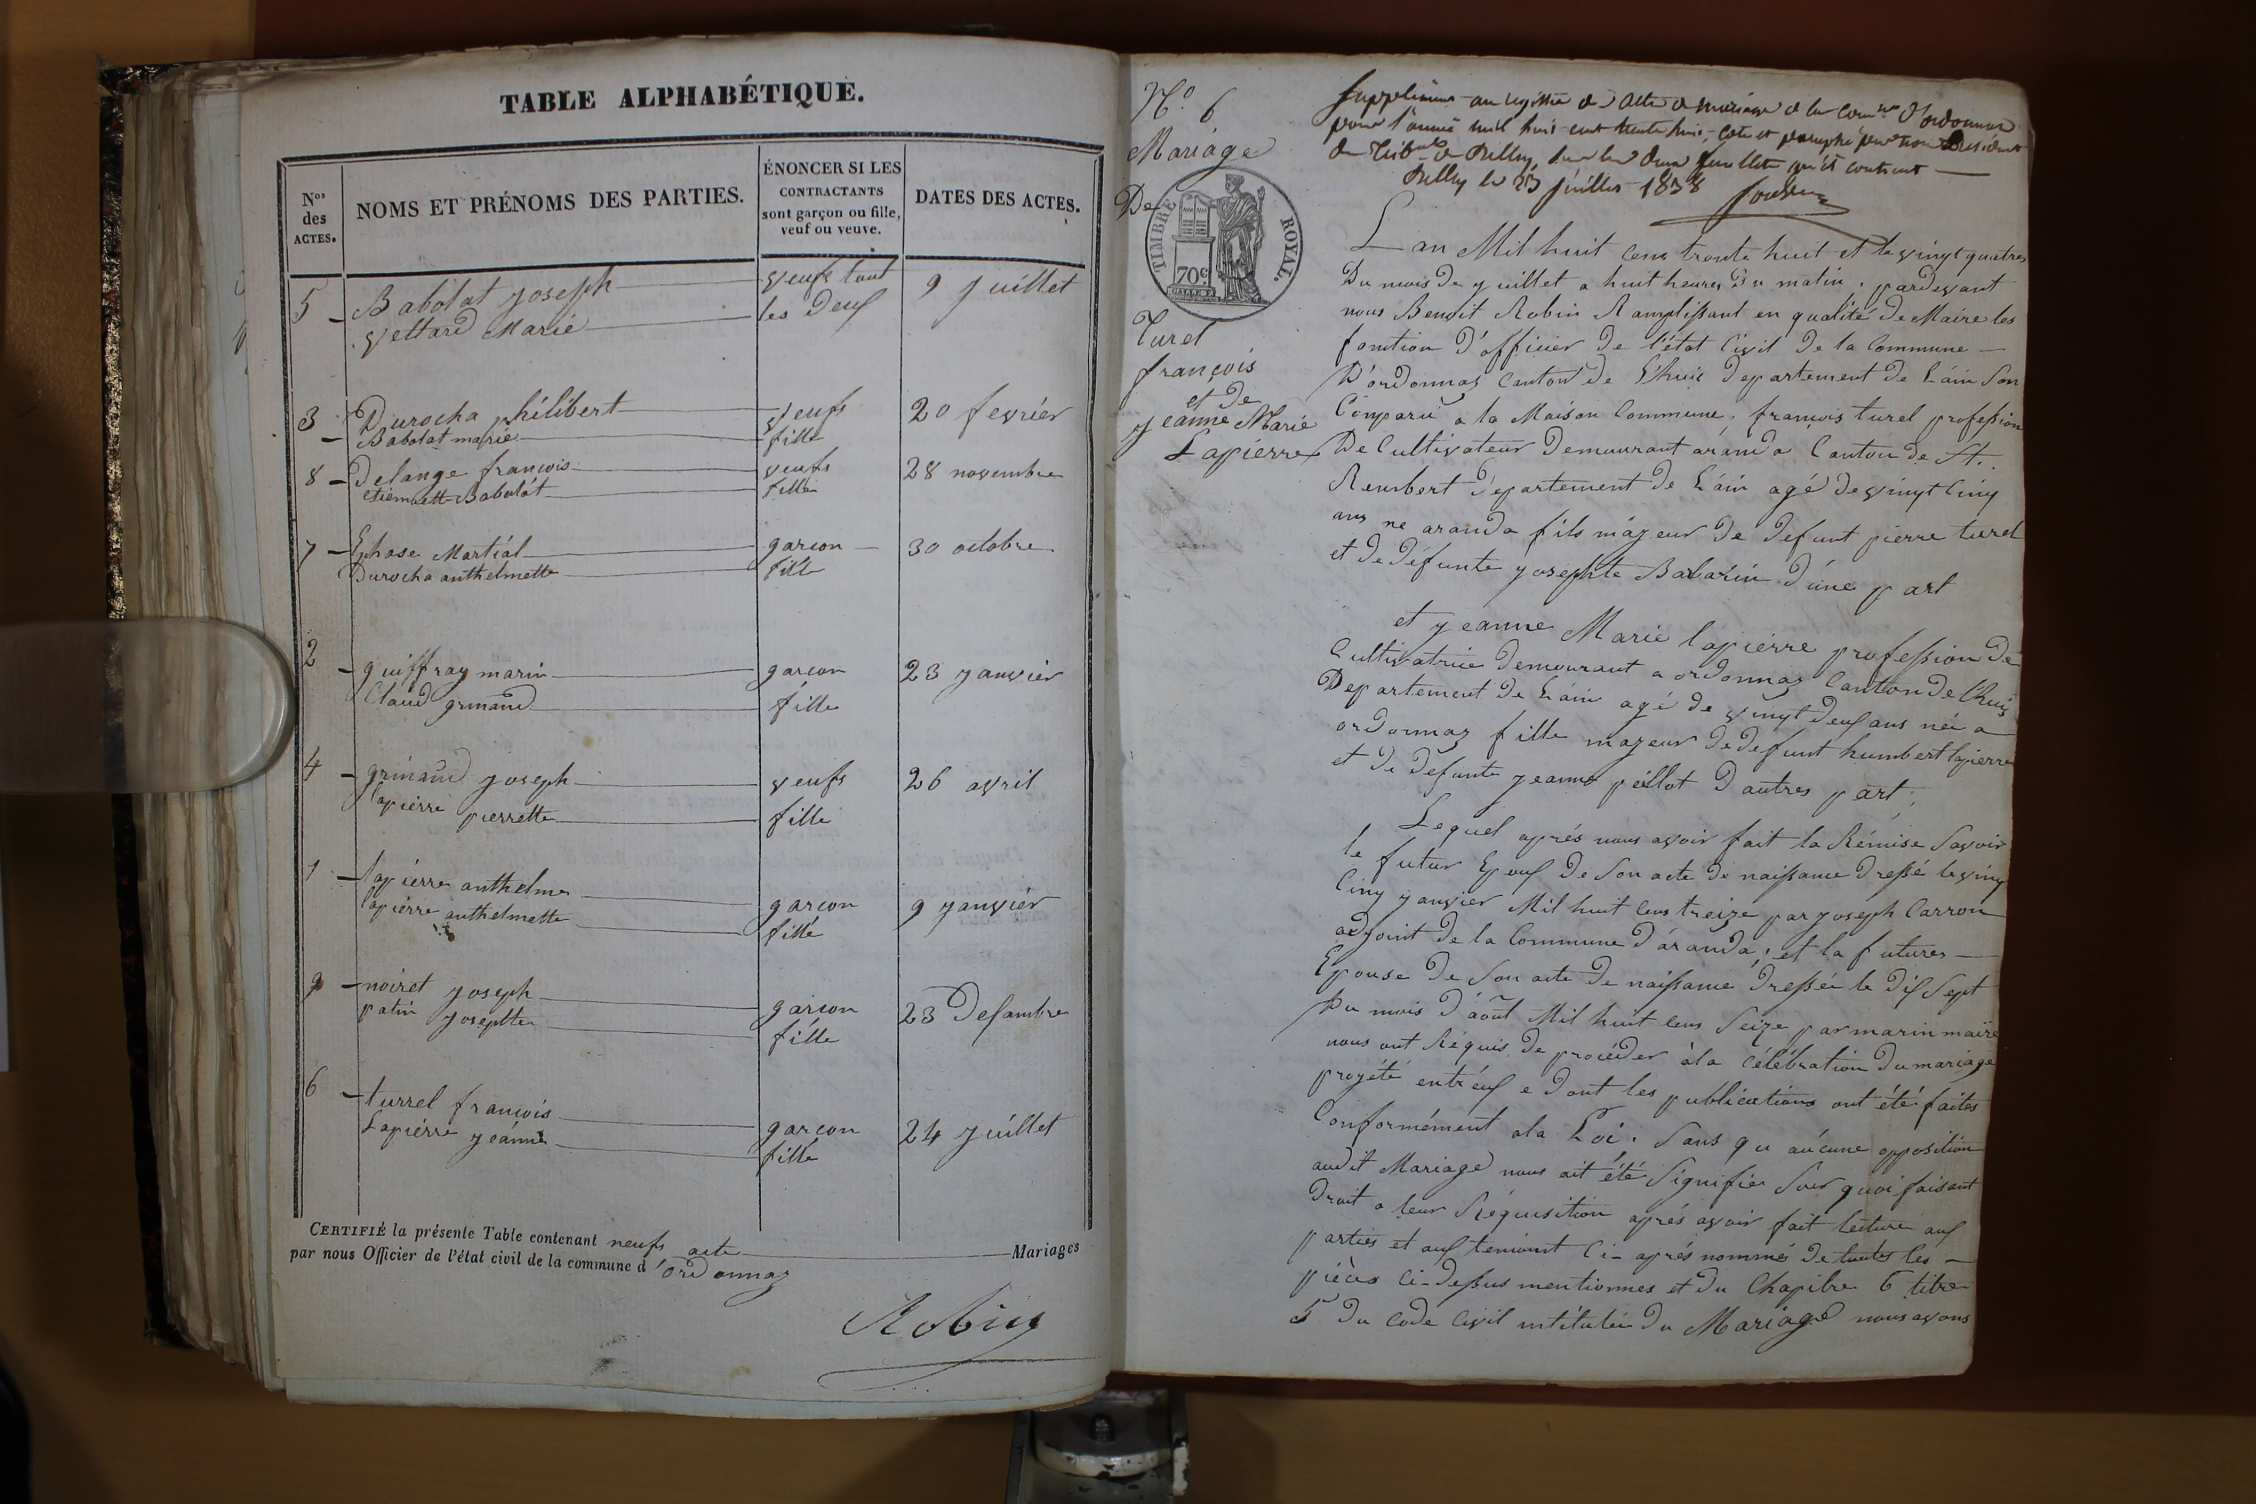 TABLE ALPHABÉTIQUE.
Nos des ACTES.
NOMS ET PRÉNOMS DES PARTIES.
ÉNONCER SI LES CONTRACTANTS sont garçon ou fille, veuf ou veuve.
DATES DES ACTES.
5 Babolat Joseph veufs tout 9 Juillet
vettard Marie les deux
3 Durocha philibert veufs 20 fevrier
Babolat marie fille
8 Delange francois veufs 28 novembre
etiennette Babolat fille
7 Ephose Martial garcon 30 octobre
Durocha anthelmette fille
2 guiffray marin garcon 23 Janvier
Claud grinand fille
4 grinand Joseph veufs 26 avril
lapierre pierrette fille
1 lapierre anthelme garcon 9 Janvier
lapierre anthelmette fille
9 noiret Joseph garcon 23 Desambre
patin Josephte fille
6 turrel francois garcon 24 Juillet
Lapierre Jeanne fille
CERTIFIÉ la présente Table contenant neufs acte Mariages
par nous Officier de l'état civil de la commune d'ordonnaz
Robin
No. 6
Mariage
De
TIMBRE ROYAL.
70c
Turel
françois
et de
Jeanne Marie
Lapierre
Supplément au registre de Acte de mariage de la comne d'ordonnaz
pour l'année mil huit cent trente huit, coté et paraphé par nous Président
du Tribal de Belley, sur les deux feuillets qu'il contient
Belley le 23 juillet 1838
L'an Mil huit cens trente huit et le vingt quatres
Du mois de Juillet a huit heures du matin, pardevant
nous Benoit Robin Ramplissant en qualité de Maire les
fonction d'officier de l'état Civil de la Commune
D'ordonnaz Canton de L'huis Departement de L'ain Son
Comparu a la Maison Commune, françois turel profession
De Cultivateur Demeurant aranda Canton de St.
Rembert Departement de L'ain agé de vingt Cinq
ans ne aranda fils majeur de defunt pierre turel
et de défunte Josephte Babarin d'une part
et Jeanne Marie lapierre profession de
Cultivatrice Demeurant a ordonnaz Canton de Lhuis
Departement de L'ain agé de vingt deux ans née a
ordonnaz fille majeur de defunt humbert lapierre
et de défunte Jeanne peillot d'autres part,
Lequel aprés nous avoir fait la Rémise Savoir
le futur Epoux de Son acte de naissance dressé le ving
Cinq Janvier Mil huit Cens treize par Joseph Carron
adjoint de la Commune d'aranda, et la futures
Epouse de Son acte de naissance dressée le dix Sept
Du mois d'août Mil huit Cens Seize par marin maire
nous ont Réquis de procéder à la célébration du mariage
projété entréux e dont les publications ont été faites
Conformément a la Loi. Sans qu aucune opposition
audit Mariage nous ait été Signifier Sur quoi faisant
Droit a leur Réquisition aprés avoir fait lecture aux
parties et aux temoint Ci-aprés nommés de toutes les
pièces Ci-dessus mentionnes et du Chapitre 6 titre
5 du Code Civil intitulée du Mariage nous avons